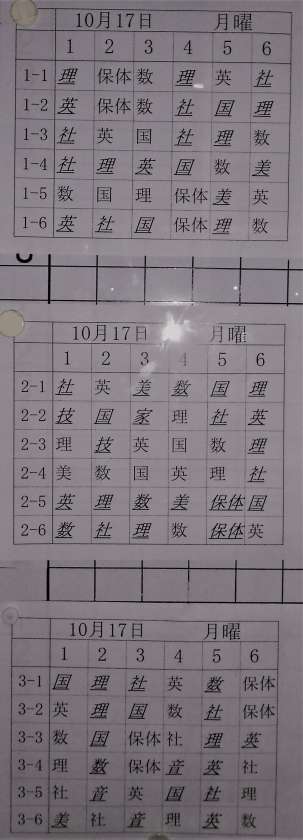 10月17日 月曜
1 2 3 4 5 6
1-1 理 保体 数 理 英 社
1-2 英 保体 数 社 国 理
1-3 社 英 国 社 理 数
1-4 社 理 英 国 数 美
1-5 数 国 理 保体 美 英
1-6 英 社 国 保体 理 数
10月17日 月曜
1 2 3 4 5 6
2-1 社 英 美 数 国 理
2-2 技 国 家 理 社 英
2-3 理 技 英 国 数 理
2-4 美 数 国 英 理 社
2-5 英 理 数 美 保体 国
2-6 数 社 理 数 保体 英
10月17日 月曜
1 2 3 4 5 6
3-1 国 理 社 英 数 保体
3-2 英 理 国 数 社 保体
3-3 数 国 保体 社 理 英
3-4 理 数 保体 音 英 社
3-5 社 音 英 国 社 理
3-6 美 社 音 理 英 数